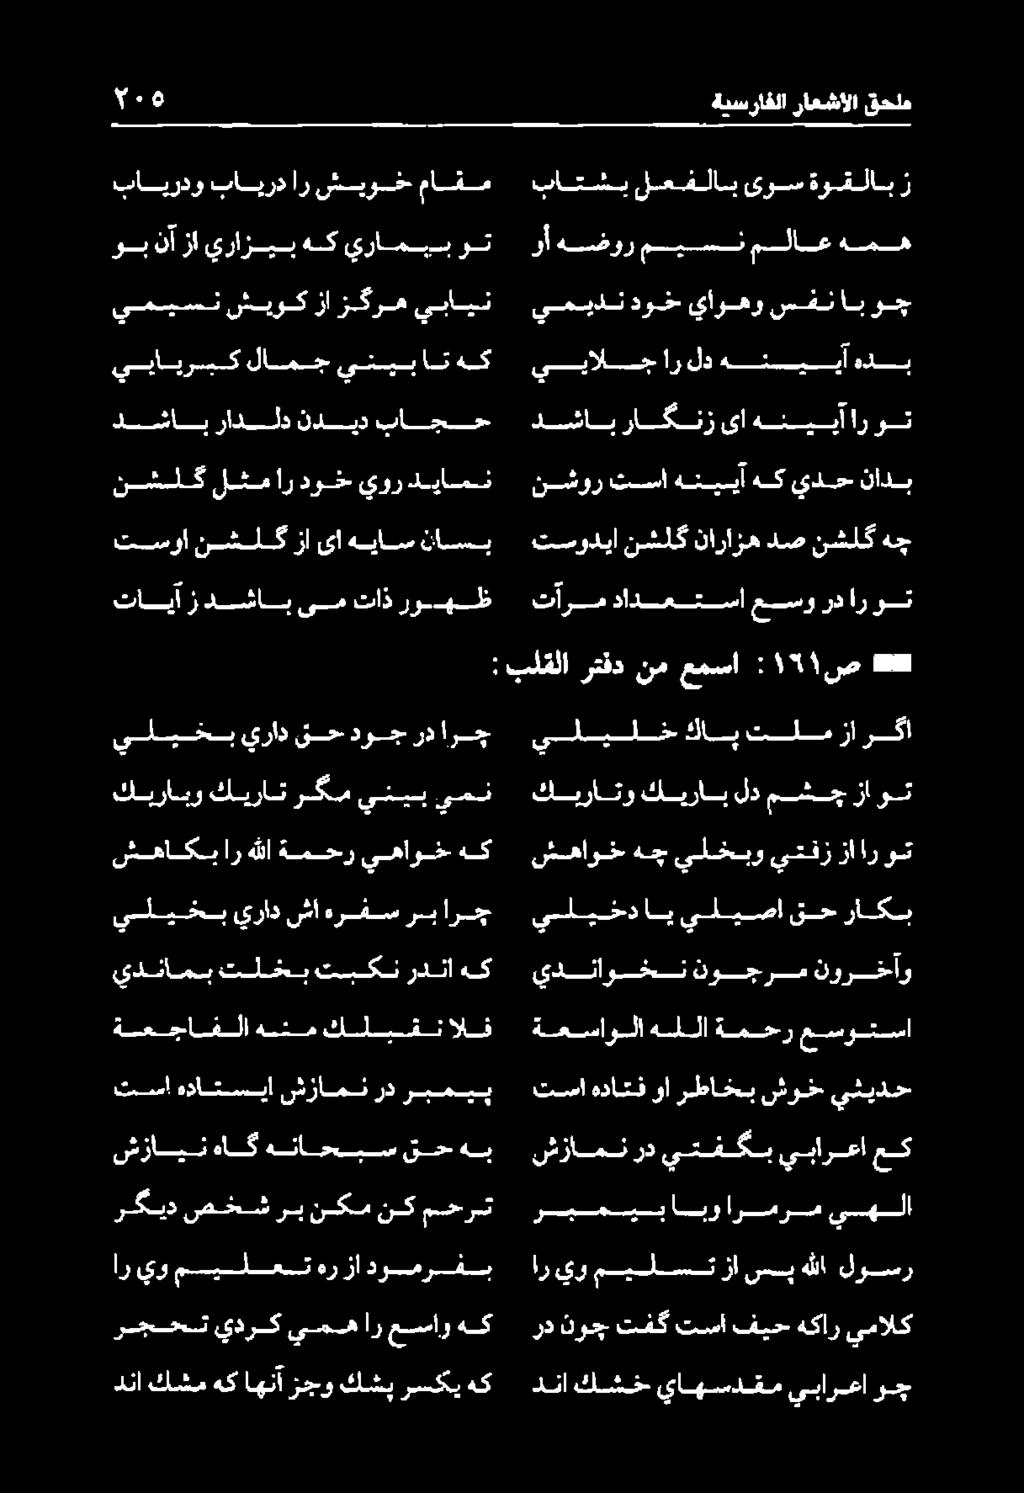 ملحق الأشعار الفارسية ٢٠٥
ز بالقوة سوى بالفعل بشتاب مقام خويش را درياب ودرياب
همه عالم نسيم روضه أو تو بيماري كه بيزاري از آن بو
چو با نفس وهواي خود نديمي نيابي هرگز از كويش نسيمي
بده آيينه دل را جلايي كه تا بيني جمال كبريايي
تو را آيينه اى زنگار باشد حجاب ديدن دلدار باشد
بدان حدي كه آيينه است روشن نمايد روي خود را مثل گلشن
چه گلشن صد هزاران گلشن ايدوست بسان سايه اى از گلشن اوست
تو را در وسع استعداد مرآت ظهور ذات مى باشد ز آيات
ص١٦١ : اسمع من دفتر القلب :
اگر از ملت پاك خليلي چرا در جود حق داري بخيلي
تو از چشم دل باريك وتاريك نمي بيني مگر تاريك وباريك
تو را از زفتي وبخلي چه خواهش كه خواهي رحمة الله را بكاهش
بكار حق اصيلي يا دخيلي چرا بر سفره اش داري بخيلي
وآخرون مرجون نخواندي كه اندر نكبت بخلت بماندي
استوسع رحمة الله الواسعة فلا نقيلك منه الفاجعة
حديثي خوش بخاطر او فتاده است پيمبر در نمازش ايستاده است
كع اعرابي بگفتي در نمازش به حق سبحانه گاه نيازش
الهي مرمرا وبا بيمبر ترحم كن مكن بر شخص ديگر
رسول الله پس از تسليم وي را بفرمود از ره تعليم وي را
كلامي راكه حيف است گفت چون در كه واسع را همي كردي تحجر
چو اعرابي مقدسهاي خشك اند كه يكسر پشك وجز آنها كه مشك اند